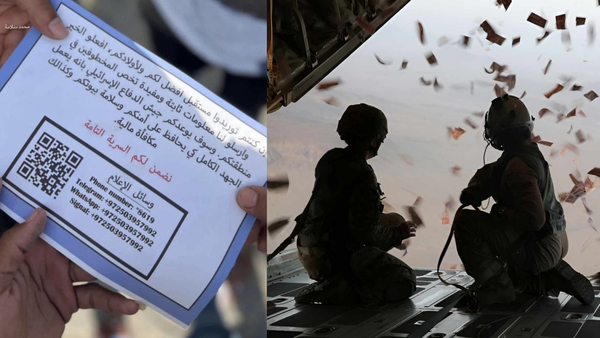 محمد سلامة
ان كنتم توريدوا مستقبل افضل لكم ولأولادكم، افعلو الخير
وارسلو لنا معلومات ثابتة ومفيدة تخص المخطوفين في
منطقتكم. وسوف يوعدكم جيش الدفاع الاسرائيلي بانه يعمل
الجهد الكامل في يحافظ على أمنكم وسلامة بيوتكم وكذالك
مكافأة مالية.
نضمن لكم السرية التامة
وسائل الإعلام
Phone number: *8619
Telegram:+972503957992
WhatsApp:+972503957992
Signal:+972503957992